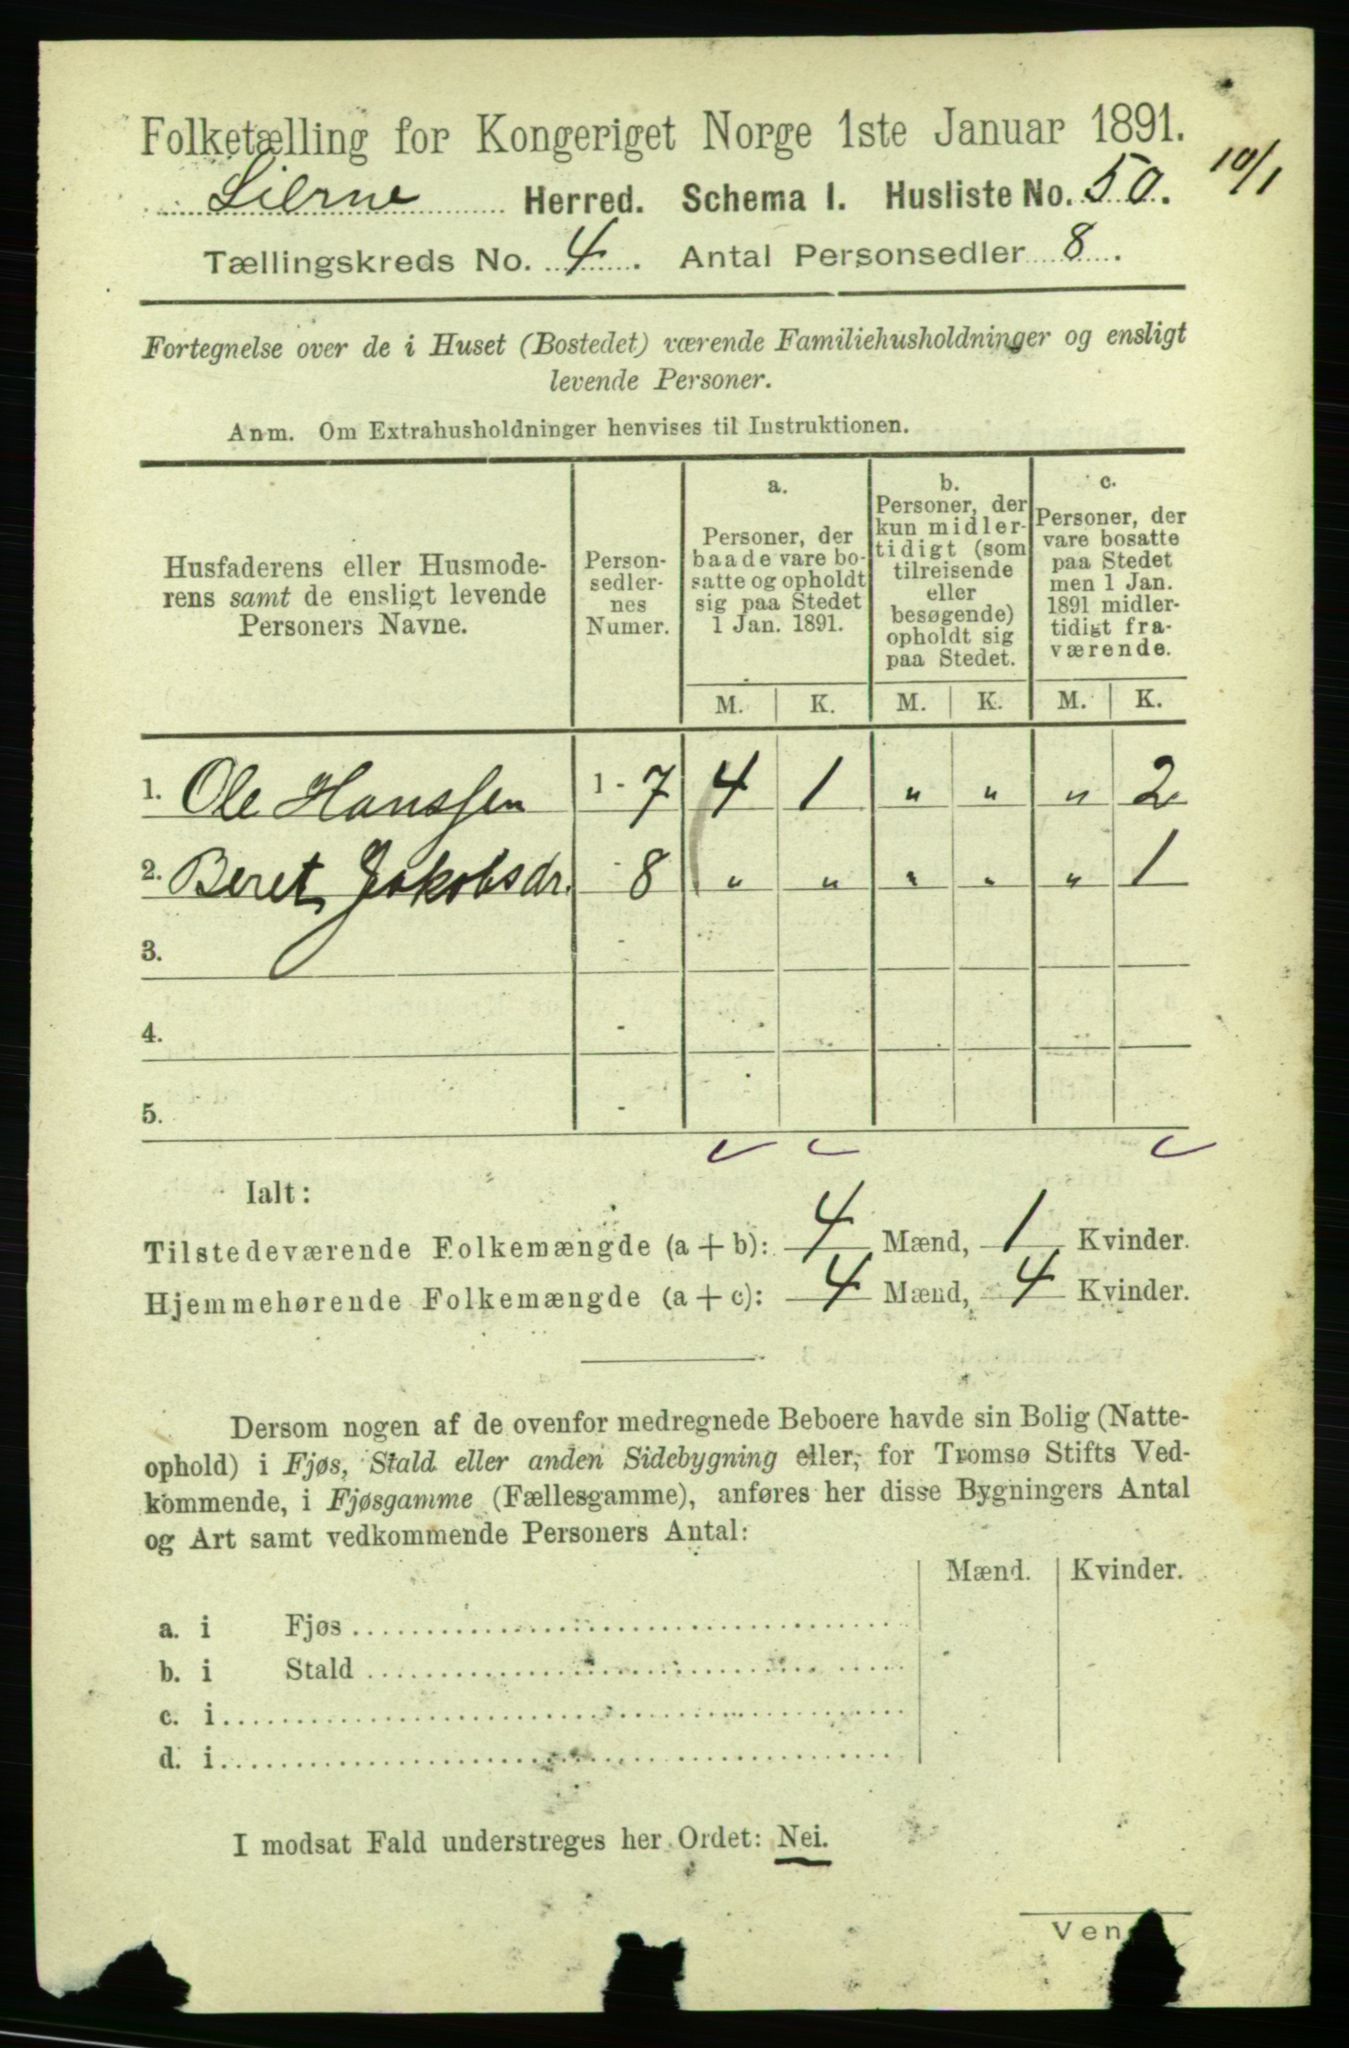 Folketælling for Kongeriget Norge 1ste Januar 1891.
10/1
Lierne Herred. Schema I. Husliste No. 50.
Tællingskreds No. 4. Antal Personsedler 8.
Fortegnelse over de i Huset (Bostedet) værende Familiehusholdninger og ensligt
levende Personer.
Anm. Om Extrahusholdninger henvises til Instruktionen.
Husfaderens eller Husmode-
rens samt de ensligt levende
Personers Navne.
Person-
sedler-
nes
Numer.
a.
Personer, der
baade vare bo-
satte og opholdt
sig paa Stedet
1 Jan. 1891.
b.
Personer, der
kun midler-
tidigt (som
tilreisende
eller
besøgende)
opholdt sig
paa Stedet.
c.
Personer, der
vare bosatte
paa Stedet
men 1 Jan.
1891 midler-
tidigt fra-
værende.
M. K. M. K. M. K.
1. Ole Hanssen 1 - 7 4 1 " " " 2
2. Beret Jakobsdr. - 8 " " " " " 1
3. -
4. -
5. -
Ialt:
Tilstedeværende Folkemængde (a + b): 4 Mænd, 1 Kvinder.
Hjemmehørende Folkemængde (a + c): 4 Mænd, 4 Kvinder.
Dersom nogen af de ovenfor medregnede Beboere havde sin Bolig (Natte-
ophold) i Fjøs, Stald eller anden Sidebygning eller, for Tromsø Stifts Ved-
kommende, i Fjøsgamme (Fællesgamme), anføres her disse Bygningers Antal
og Art samt vedkommende Personers Antal:
Mænd. Kvinder.
a. i Fjøs
b. i Stald
c. i
d. i
I modsat Fald understreges her Ordet: Nei.